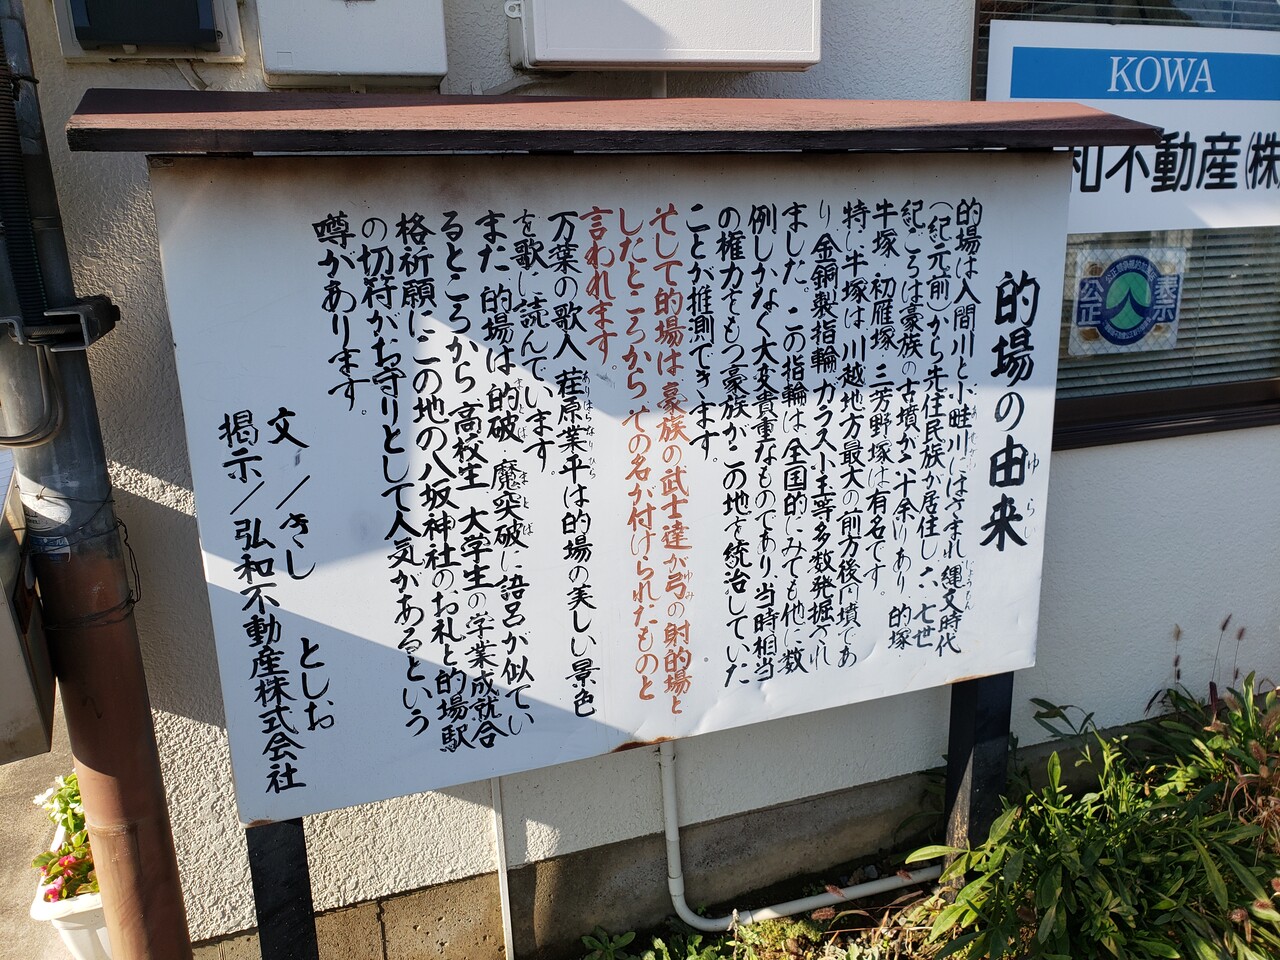 的場の由来
ゆらい
的場は入間川と小畦川にはさまれ縄文時代
(紀元前)から先住民族が居住し六、七世
紀ごろは豪族の古墳が二十余りあり 的塚・
牛塚・初雁塚・三芳野塚は有名です。
特に牛塚は川越地方最大の前方後円墳であ
り、金銅製指輪、ガラス小玉等多数発掘され
ました。この指輪は全国的にみても他に数
例しかなく大変貴重なものであり、当時相当
の権力をもつ豪族がこの地を統治していた
ことが推測できます。
そして的場は豪族の武士達が弓の射的場と
したところから その名が付けられたものと
言われます。
万葉の歌人 荏原業平は的場の美しい景色
を歌に読んでいます。
また 的場は的破・魔突破に語呂が似てい
るところから 高校生 大学生の学業成就合
格祈願にこの地の八坂神社のお札と的場駅
の切符がお守りとして人気があるという
噂があります。
文/きし としお
掲示/弘和不動産株式会社
KOWA
和不動産(株
公正
表示